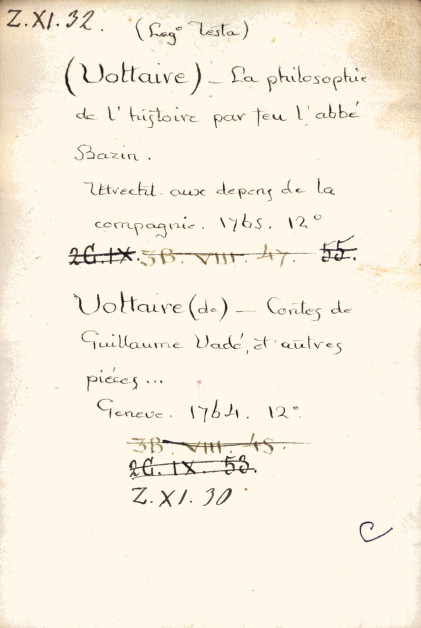 Z.XI.32.
(Leg° Testa)
(Voltaire) – La philosophie
de l'histoire par feu l'abbé
Bazin.
Utrecht. aux depens de la
compagnie. 1765. 12°
2G.IX. 3B. VIII. 47. 55.
Voltaire (de) – Contes de
Guillaume Vadé, et autres
piéces...
Geneve. 1764. 12°
3B. VIII. 45.
2G. IX. 53.
Z.XI.30
C